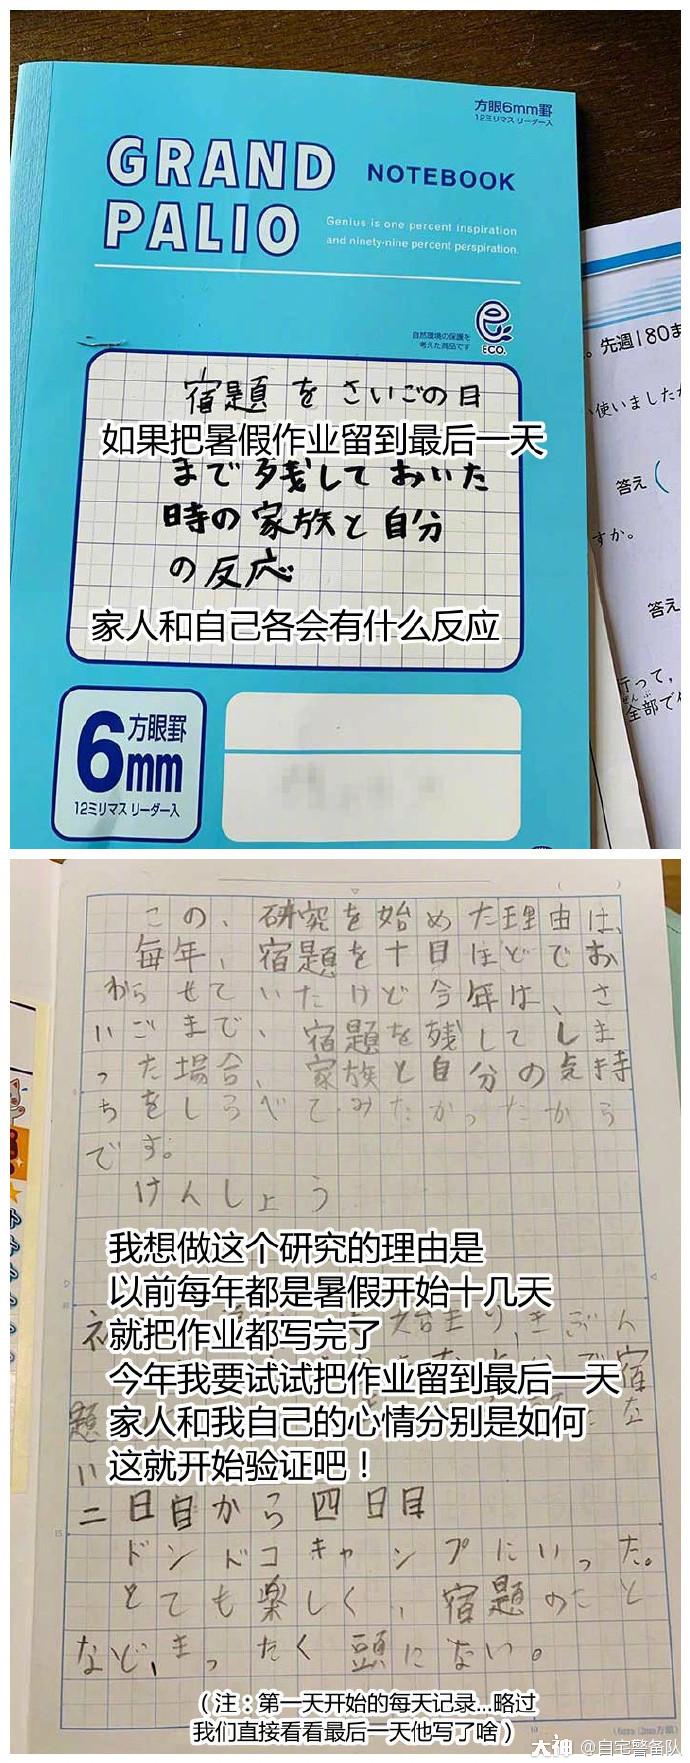 方眼6mm罫
12ミリマス リーダー入
GRAND
PALIO
NOTEBOOK
Genius is one percent inspiration
and ninety-nine percent perspiration.
自然環境の保護を
考えた商品です
ECO.
宿題をさいごの日
如果把暑假作业留到最后一天
まで残しておいた
時の家族と自分
の反応
家人和自己各会有什么反应
6mm
方眼罫
12ミリマス リーダー入
先週180ま
使いました
答え(
すか。
答え
行って,
ぜんぶ
全部で
この、研究を始めた理由は、
毎年、宿題を十日ほどでお
わらせていたけど今年は、さ
いごまで、宿題を残してしま
った場合、家族と自分の気持
ちをしらべてみたかったから
です。
けんしょう
我想做这个研究的理由是
以前每年都是暑假开始十几天
就把作业都写完了
今年我要试试把作业留到最后一天
家人和我自己的心情分别是如何
这就开始验证吧！
始まり、きげん
宿
題
な
い
二日目から四日目
ドンドコキャンプにいった。
とても楽しく、宿題のこと
など、まったく頭にない。
（注：第一天开始的每天记录...略过
我们直接看看最后一天他写了啥）
10
15
(6mm 12mm方眼)
大神 @自宅警备队